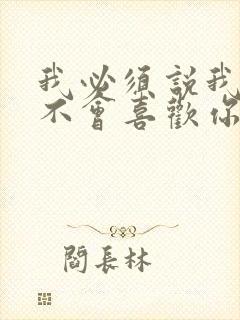 我必須説我
不會喜歡你
閻長林